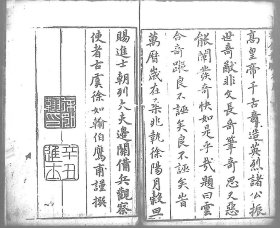 高皇帝千古奇造英烈諸公振
世奇猷非文長奇筆奇思又惡
能闡發奇快如是乎哉題曰雲
合奇蹤良不誣矣良不誣矣旹
萬曆歲在柔兆執徐陽月穀旦
賜進士朝列大夫邊關備兵觀察
使者古虞徐如翰伯鷹甫謹撰